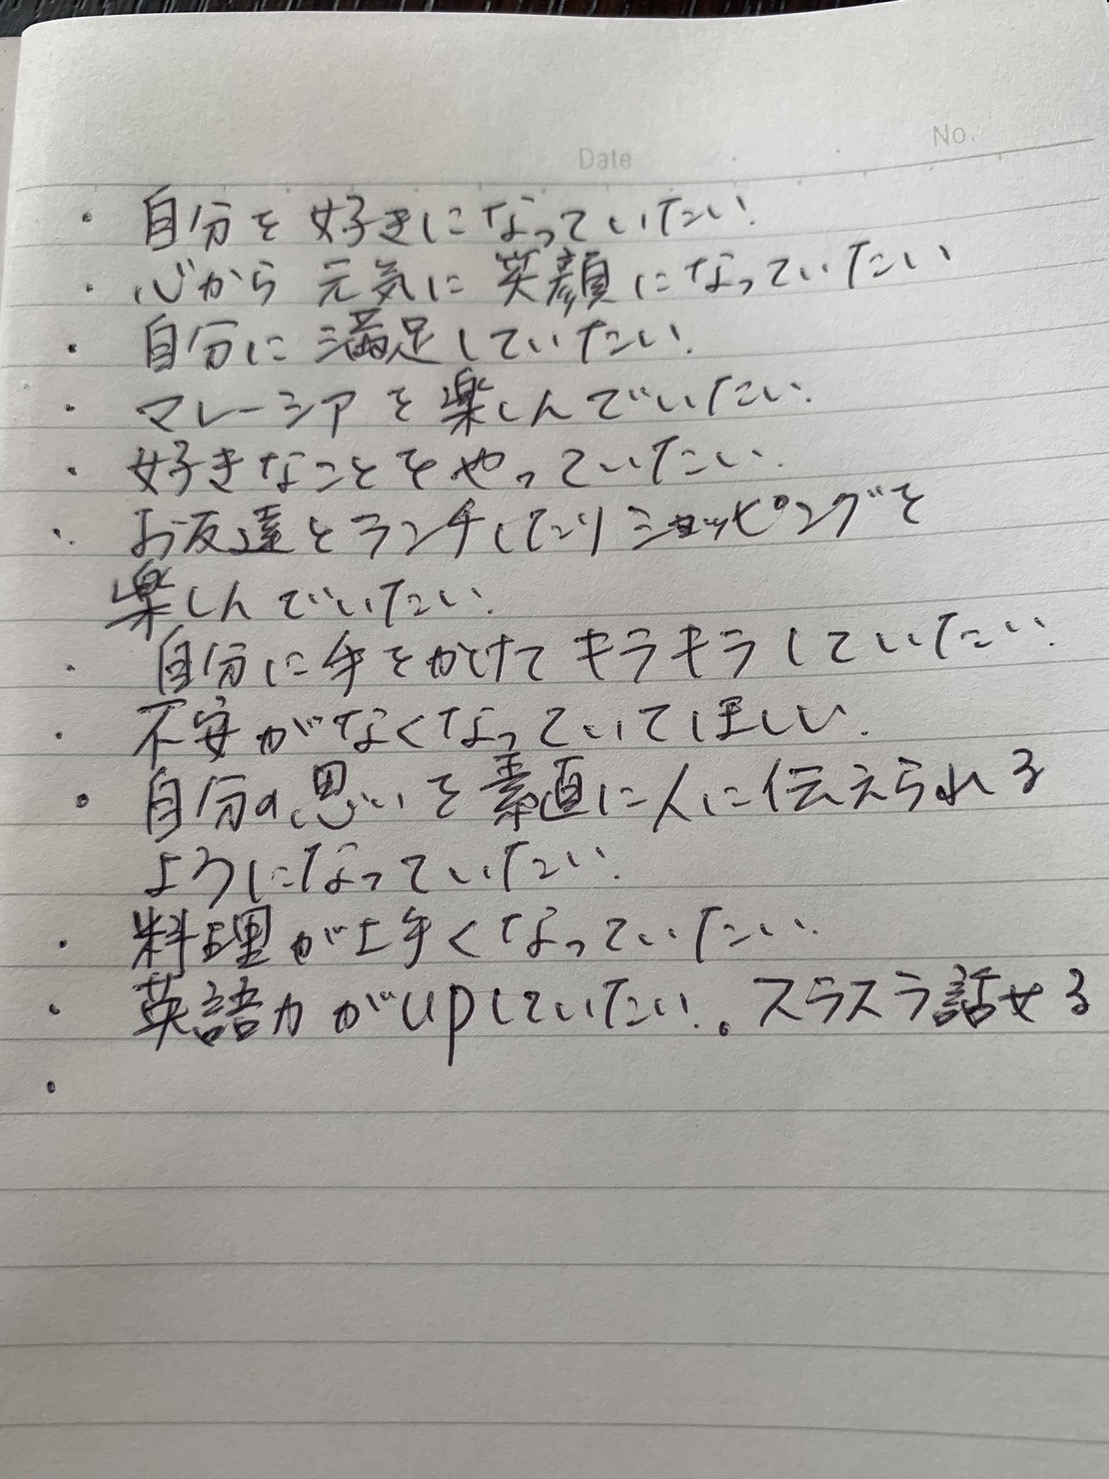 Date
No.
・自分を好きになっていたい.
・心から元気に笑顔になっていたい
・自分に満足していたい.
・マレーシアを楽しんでいたい.
・好きなことをやっていたい.
・お友達とランチしたりショッピングを
楽しんでいたい.
・自分に手をかけてキラキラしていたい.
・不安がなくなっていてほしい.
・自分の思いを素直に人に伝えられる
ようになっていたい.
・料理が上手くなっていたい.
・英語力がupしていたい.。スラスラ話せる
・